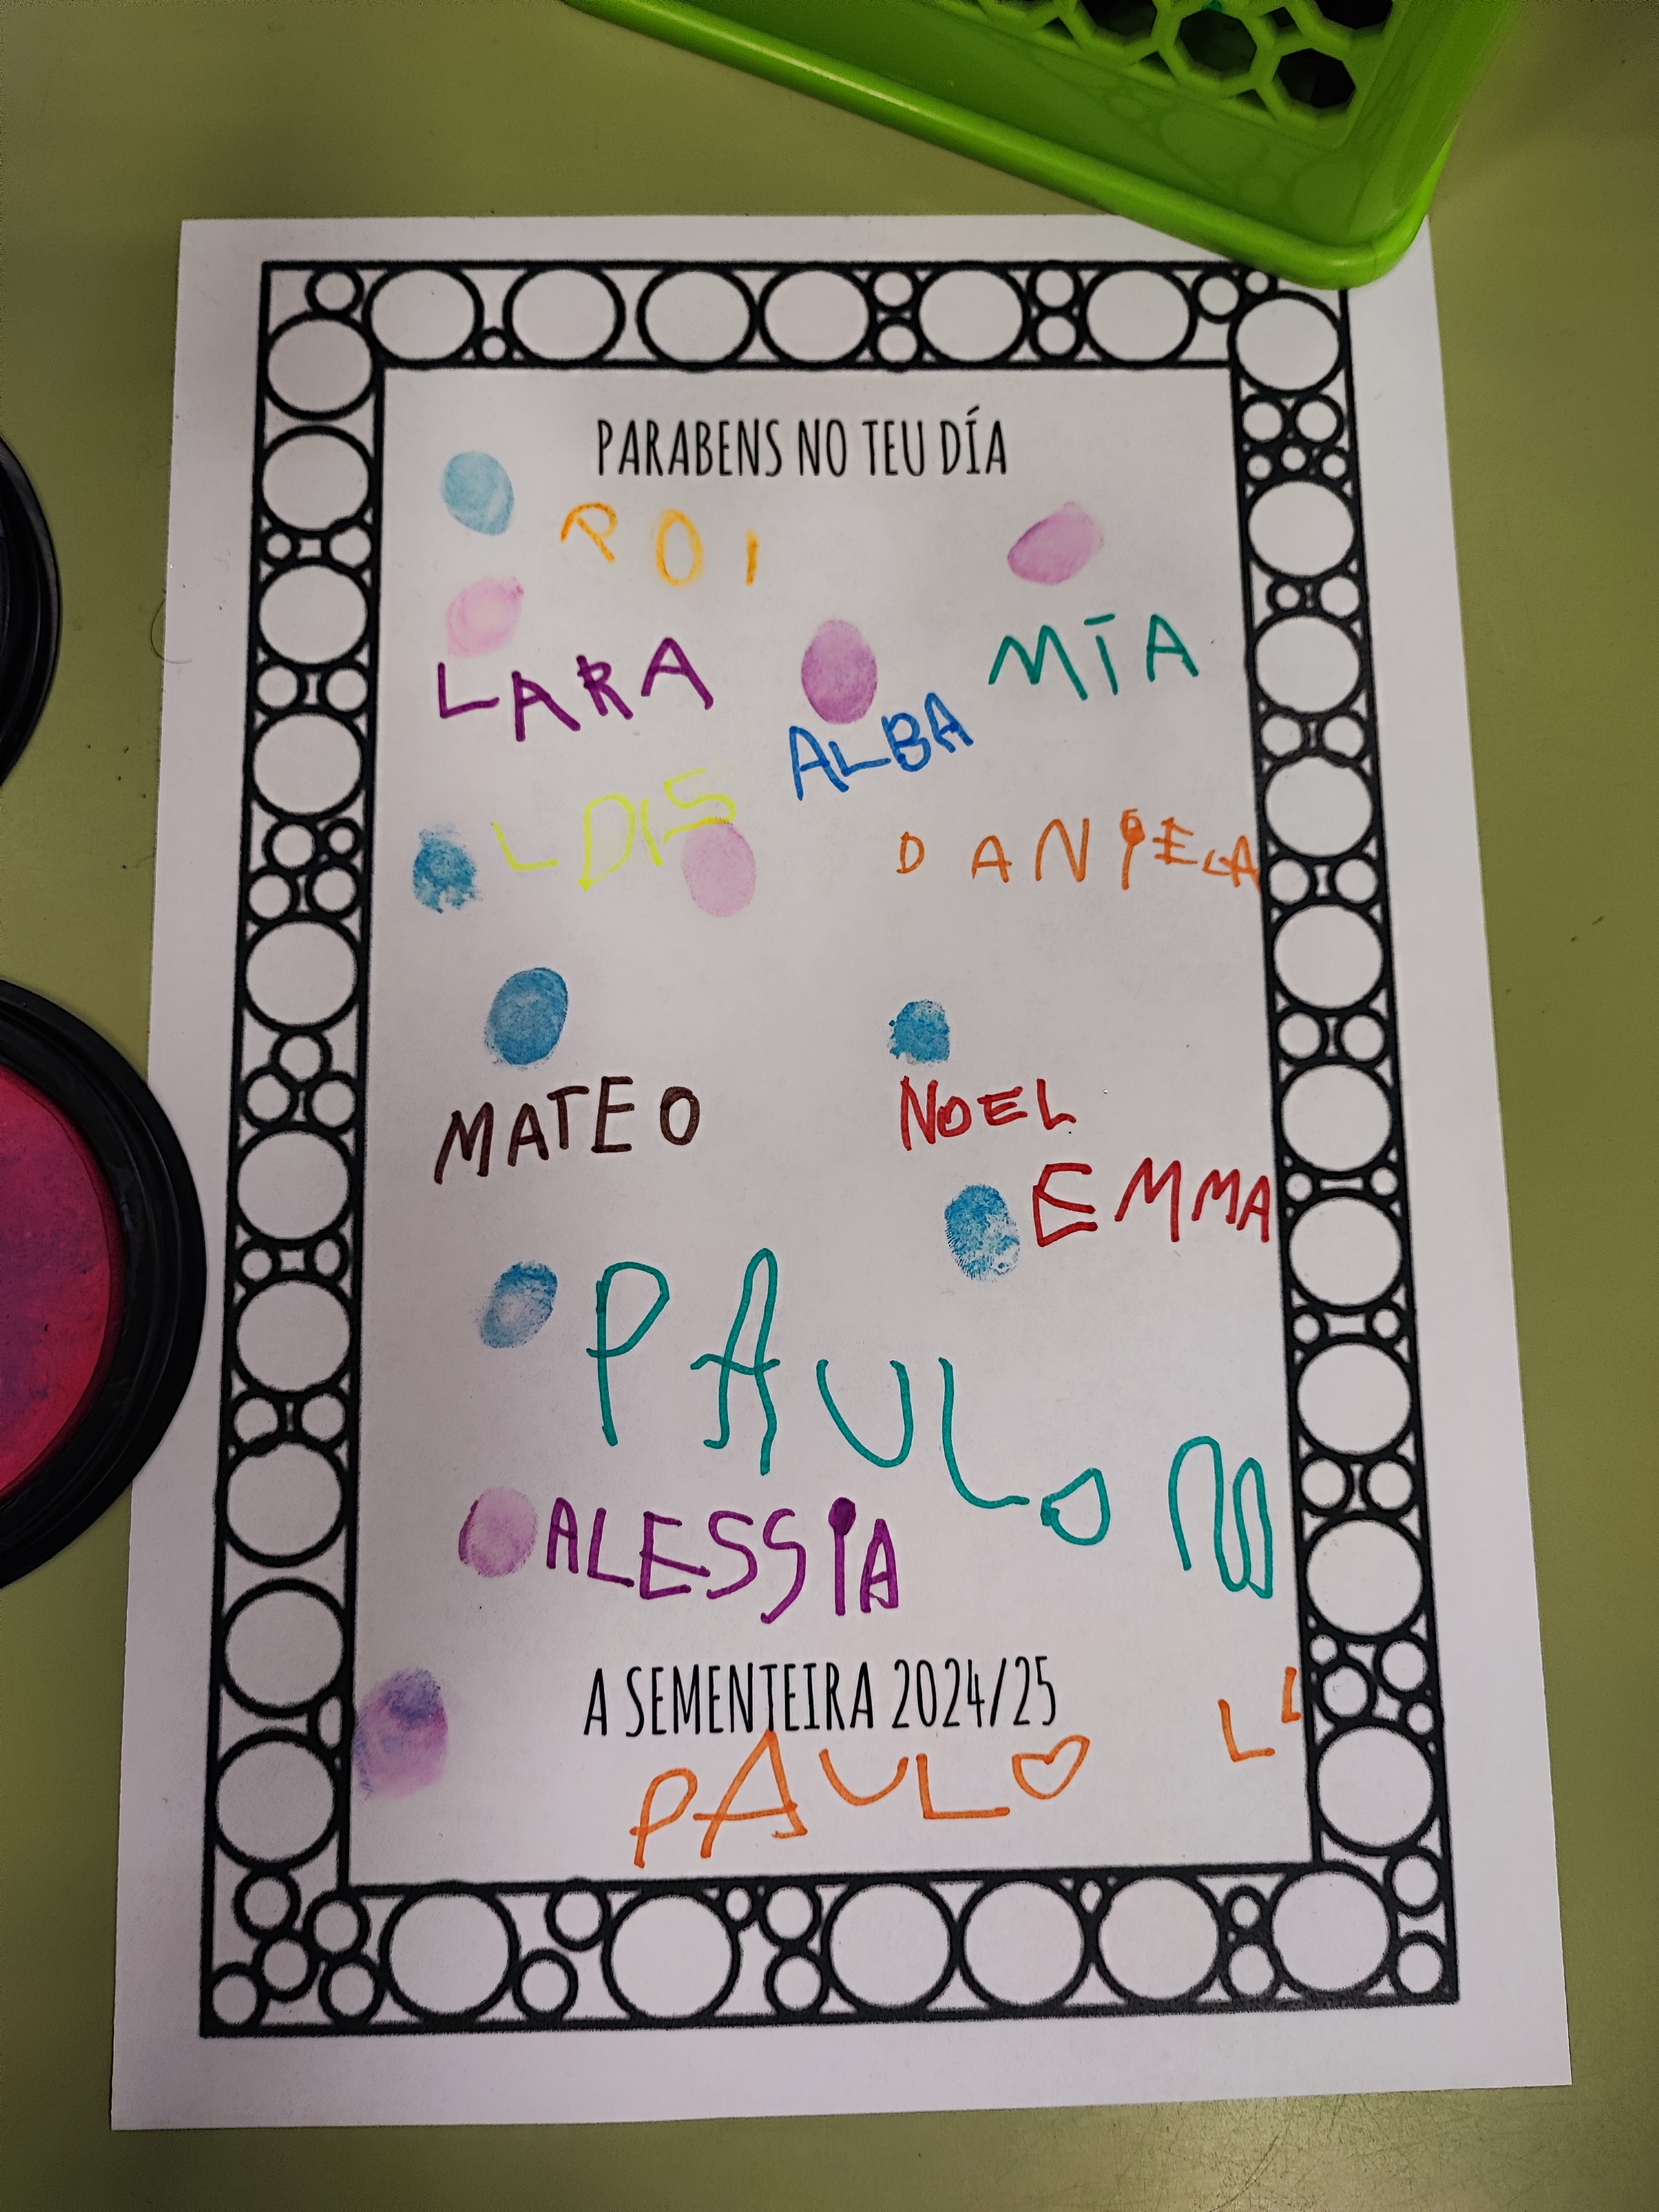 PARABENS NO TEU DÍA
ROI
LARA
MÍA
ALBA
LOIS
DANIELA
MATEO
NOEL
EMMA
PAULO M
ALESSIA
A SEMENTEIRA 2024/25
PAULO L L